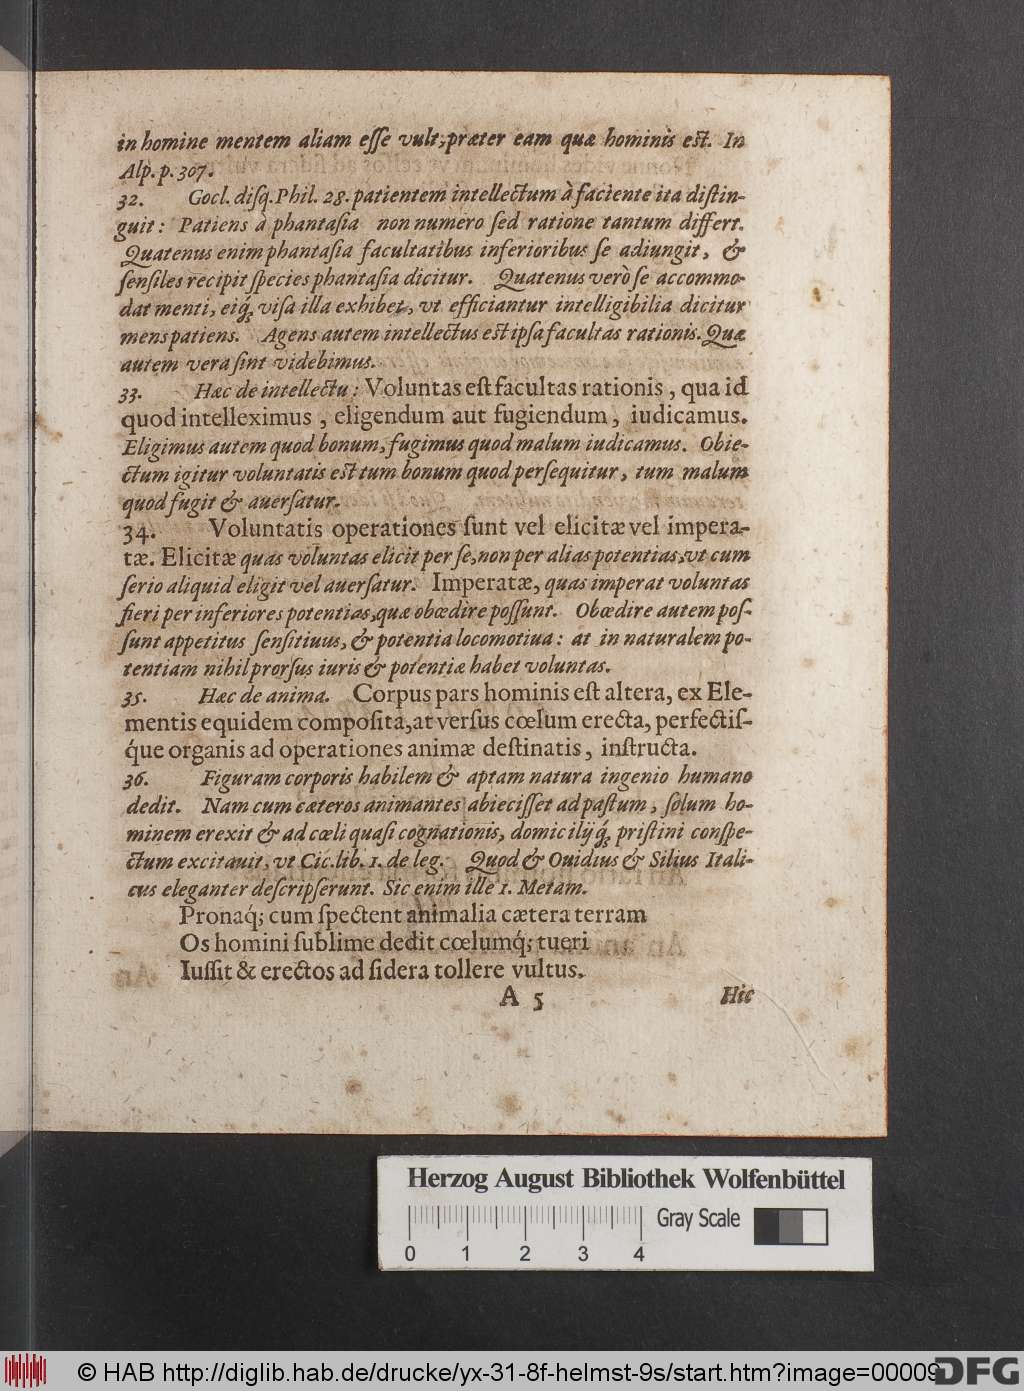 in homine mentem aliam eſſe vult, præter eam quæ hominis eſt. In
Alp. p. 307.
32. Gocl. diſq. Phil. 28. patientem intellectum à faciente ita diſtin-
guit: Patiens à phantaſia non numero ſed ratione tantum differt.
Quatenus enim phantaſia facultatibus inferioribus ſe adiungit, &
ſenſiles recipit ſpecies phantaſia dicitur. Quatenus verò ſe accommo-
dat menti, eiq́; viſa illa exhibet, vt efficiantur intelligibilia dicitur
mens patiens. Agens autem intellectus eſt ipſa facultas rationis. Quæ
autem vera ſint videbimus.
33. Hæc de intellectu: Voluntas eſt facultas rationis, qua id
quod intelleximus, eligendum aut fugiendum, iudicamus.
Eligimus autem quod bonum, fugimus quod malum iudicamus. Obie-
ctum igitur voluntatis eſt tum bonum quod perſequitur, tum malum
quod fugit & auerſatur.
34. Voluntatis operationes ſunt vel elicitæ vel impera-
tæ. Elicitæ quas voluntas elicit per ſe, non per alias potentias, vt cum
ſerio aliquid eligit vel auerſatur. Imperatæ, quas imperat voluntas
fieri per inferiores potentias, quæ obœdire poſſunt. Obœdire autem poſ-
ſunt appetitus ſenſitiuus, & potentia locomotiua: at in naturalem po-
tentiam nihil prorſus iuris & potentiæ habet voluntas.
35. Hæc de anima. Corpus pars hominis eſt altera, ex Ele-
mentis equidem compoſita, at verſus cœlum erecta, perfectiſ-
q́ue organis ad operationes animæ deſtinatis, inſtructa.
36. Figuram corporis habilem & aptam natura ingenio humano
dedit. Nam cum cæteros animantes abieciſſet ad paſtum, ſolum ho-
minem erexit & ad cœli quaſi cognationis, domicilijq́; priſtini conſpe-
ctum excitauit, vt Cic. lib. 1. de leg. Quod & Ouidius & Silius Itali-
cus eleganter deſcripſerunt. Sic enim ille 1. Metam.
Pronaq́; cum ſpectent animalia cætera terram
Os homini ſublime dedit cœlumq́; tueri
Iuſſit & erectos ad ſidera tollere vultus.
A 5 Hic
Herzog August Bibliothek Wolfenbüttel
Gray Scale
0 1 2 3 4
© HAB http://diglib.hab.de/drucke/yx-31-8f-helmst-9s/start.htm?image=00009
DFG